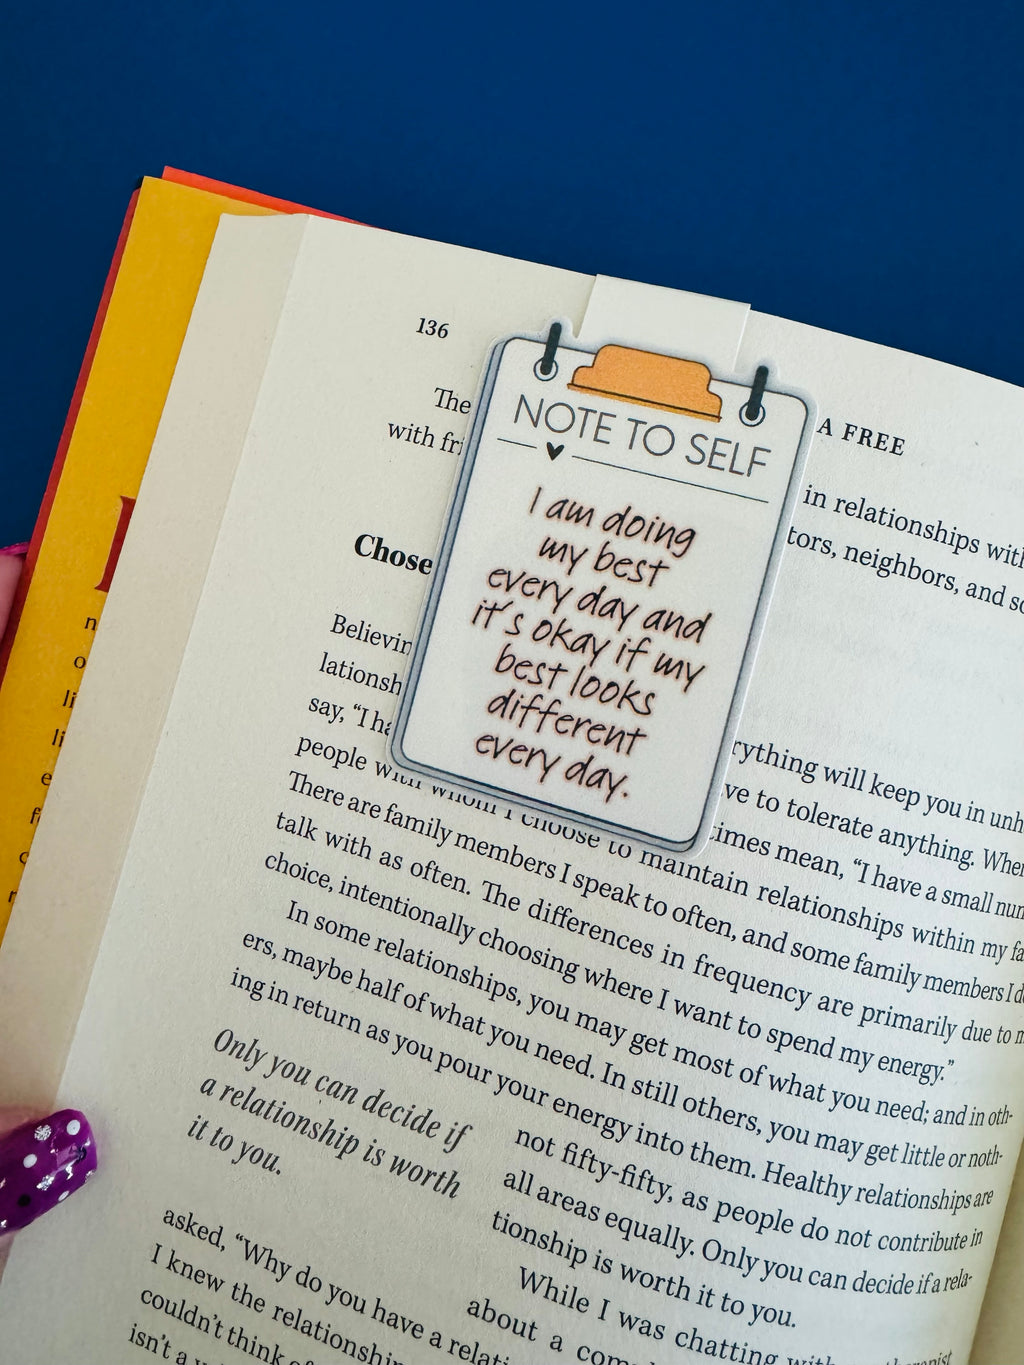 136
A FREE
The
with fri
in relationships with
tors, neighbors, and so
NOTE TO SELF
I am doing
my best
every day and
it's okay if my
best looks
different
every day.
Chose
Believin
lationsh
say, "I ha
people with whom I choose to maintain relationships within my fa
There are family members I speak to often, and some family members I do
talk with as often. The differences in frequency are primarily due to m
choice, intentionally choosing where I want to spend my energy."
rything will keep you in unh
ve to tolerate anything. When
times mean, "I have a small num
In some relationships, you may get most of what you need; and in oth-
ers, maybe half of what you need. In still others, you may get little or noth-
ing in return as you pour your energy into them. Healthy relationships are
not fifty-fifty, as people do not contribute in
all areas equally. Only you can decide if a rela-
tionship is worth it to you.
Only you can decide if
a relationship is worth
it to you.
While I was chatting with
about a
asked, "Why do you have a relati
I knew the relationshi
couldn't think of
isn't a